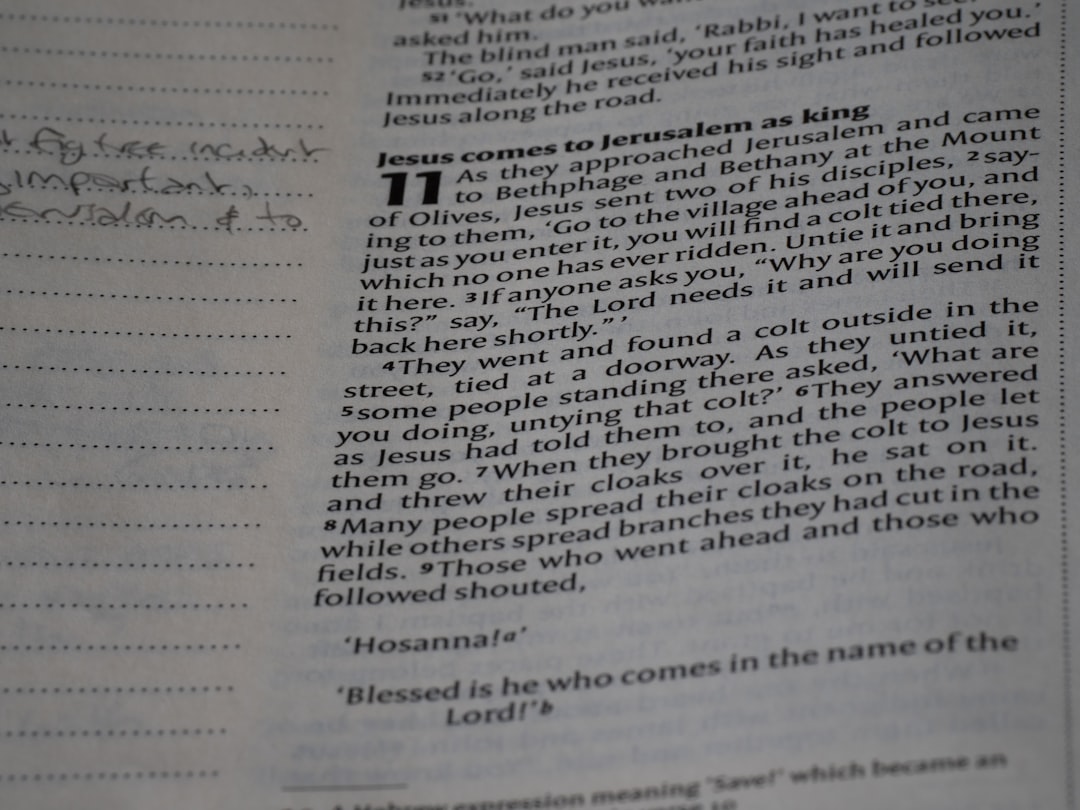 fig tree incident
important,
& to
Jesus.
51 ‘What do you
asked him.
The blind man said, ‘Rabbi, I want to see.’
52 ‘Go,’ said Jesus, ‘your faith has healed you.’
Immediately he received his sight and followed
Jesus along the road.
Jesus comes to Jerusalem as king
11 As they approached Jerusalem and came
to Bethphage and Bethany at the Mount
of Olives, Jesus sent two of his disciples, 2 say-
ing to them, ‘Go to the village ahead of you, and
just as you enter it, you will find a colt tied there,
which no one has ever ridden. Untie it and bring
it here. 3 If anyone asks you, “Why are you doing
this?” say, “The Lord needs it and will send it
back here shortly.” ’
4 They went and found a colt outside in the
street, tied at a doorway. As they untied it,
5 some people standing there asked, ‘What are
you doing, untying that colt?’ 6 They answered
as Jesus had told them to, and the people let
them go. 7 When they brought the colt to Jesus
and threw their cloaks over it, he sat on it.
8 Many people spread their cloaks on the road,
while others spread branches they had cut in the
fields. 9 Those who went ahead and those who
followed shouted,
‘Hosanna!a’
‘Blessed is he who comes in the name of the
Lord!’b
A Hebrew expression meaning ‘Save!’ which became an